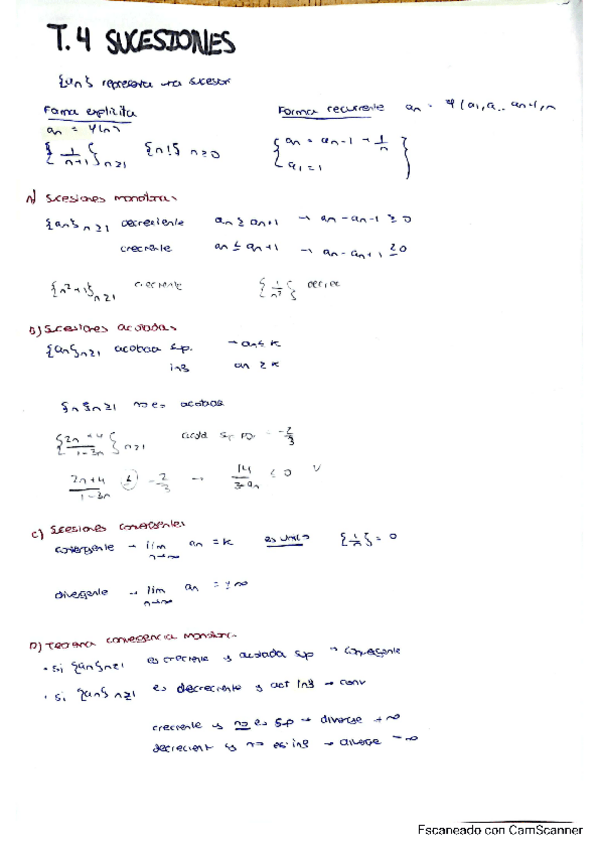 T.4 SUCESIONES
{an} representa una sucesión
Forma explícita
Forma recurrente an = φ(a1,a.. an-1,n
an = φ(n)
{1/n+1} n≥1 {n!} n≥0
{an = an-1 + 1/n
a1 = 1}
A) Sucesiones monótonas
{an} n≥1 decreciente an ≥ an+1 → an - an-1 ≥ 0
creciente an ≤ an+1 → an - an+1 ≥0
{n²+1} n≥1 creciente {1/n²} decrec
B) Sucesiones acotadas
{an} n≥1 acotada sp. → an ≤ K
inf an ≥ K
{n} n≥1 no es acotada
{2n+4/1-3n} n≥1 acotd sp -2/3
2n+4/1-3n ≤ -2/3 → 14/3-9n ≤ 0 V
C) Sucesiones convergentes
convergente → lim n→∞ an = K es único {1/n} = 0
divergente → lim n→∞ an = ±∞
D) Teorema convergencia monótona
• si {an} n≥1 es creciente y acotada sp → convergente
• si {an} n≥1 es decreciente y act inf → conv
creciente y no es sp → diverge +∞
decrecient y no es inf → diverge -∞
Escaneado con CamScanner